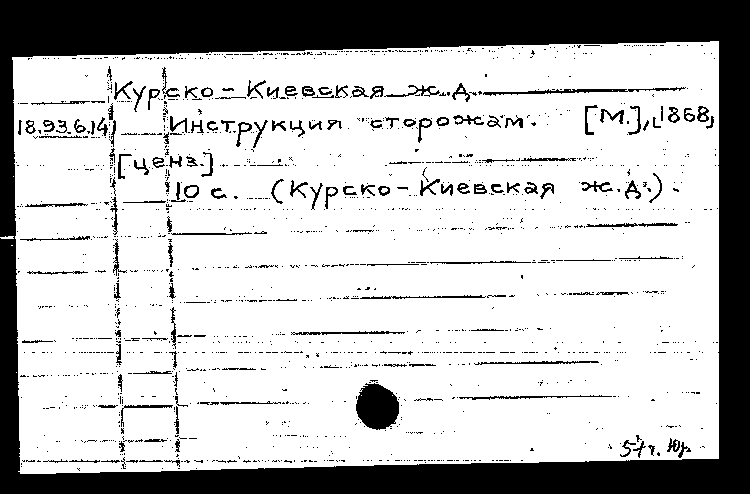 Курско-Киевская ж.д.
18.93.6.14 Инструкция сторожам. [М.], [1868,
[ценз.].
10 с. (Курско-Киевская ж.д.).